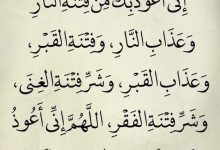 إِنِّي أَعُوذُ بِكَ مِنْ فِتْنَةِ النَّارِ
وَعَذَابِ النَّارِ، وَفِتْنَةِ الْقَبْرِ،
وَعَذَابِ الْقَبْرِ، وَشَرِّ فِتْنَةِ الْغِنَى،
وَشَرِّ فِتْنَةِ الْفَقْرِ، اللَّهُمَّ إِنِّي أَعُوذُ